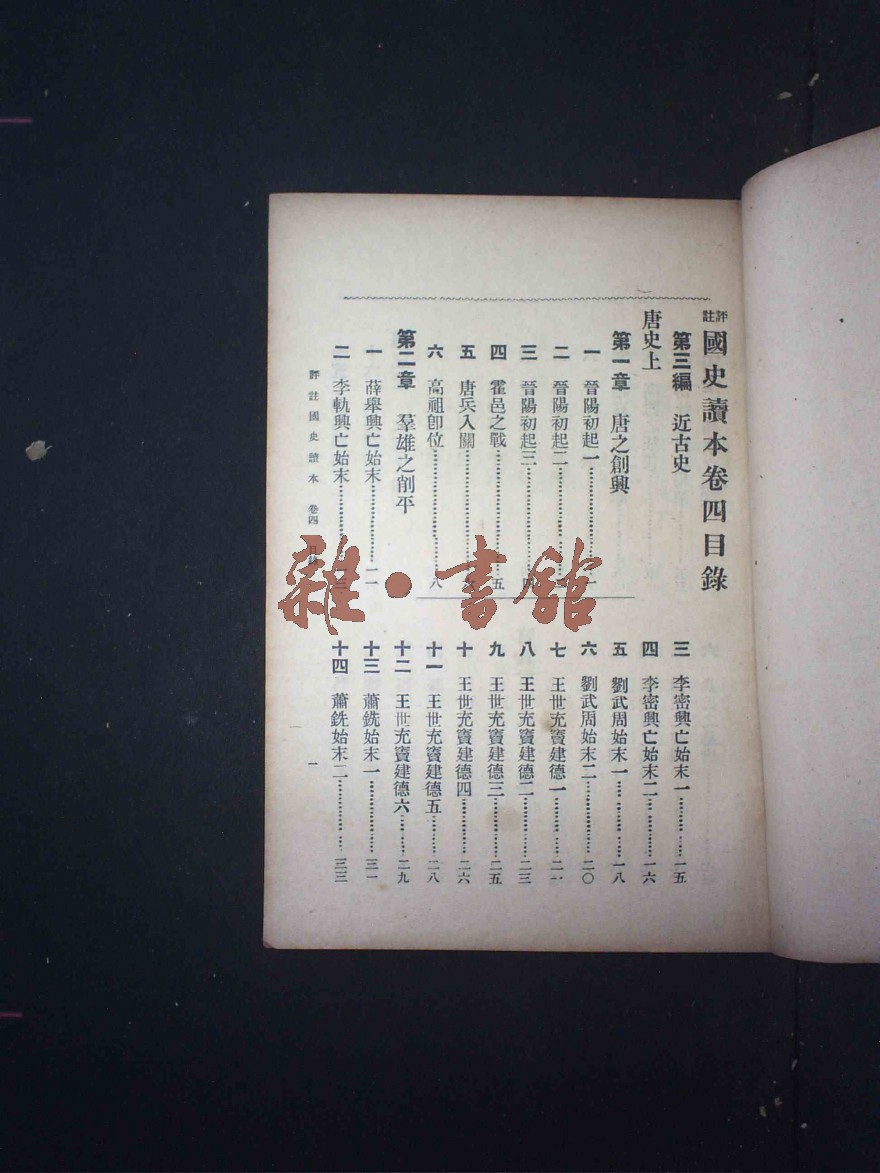 評註國史讀本卷四目錄
第三編　近古史
唐史上
第一章　唐之創興
一　晉陽初起一
二　晉陽初起二
三　晉陽初起三
四　霍邑之戰……五
五　唐兵入關
六　高祖卽位……八
第二章　羣雄之削平
一　薛舉興亡始末……一一
二　李軌興亡始末
三　李密興亡始末一……一五
四　李密興亡始末二……一六
五　劉武周始末一……一八
六　劉武周始末二……二〇
七　王世充竇建德一……二一
八　王世充竇建德二……二三
九　王世充竇建德三……二五
十　王世充竇建德四……二六
十一　王世充竇建德五……二八
十二　王世充竇建德六……二九
十三　蕭銑始末一……三一
十四　蕭銑始末二……三三
評註國史讀本　卷四
一
雜·書館